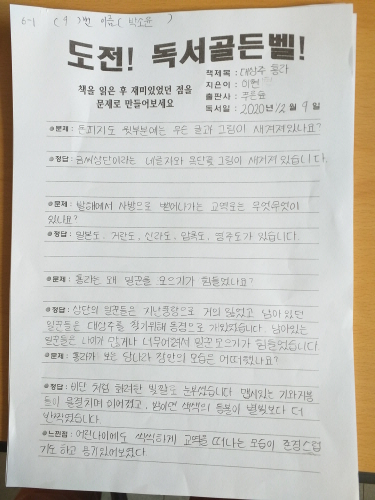 6-1 (9)번 이름(박소윤)
도전! 독서골든벨!
책을 읽은 후 재미있었던 점을
문제로 만들어보세요
책제목 : 대상주 홍라
지은이 : 이현
출판사 : 푸른숲
독서일 : 2020년 12월 9일
※문제 : 윗부분에는 무슨 글과 그림이 새겨져있나요?
※정답 : 금씨상단이라는 네글자와 목단꽃 그림이 새겨져 있습니다.
※문제 : 발해에서 사방으로 뻗어나가는 교역로는 무엇무엇이
있나요?
※정답 : 일본도, 거란도, 신라도, 압록도, 영주도가 있습니다.
※문제 : 홍라는 왜 일꾼을 모으기가 힘들었나요?
※정답 : 상단의 일꾼들은 지난풍랑으로 거의 잃었고 남아 있던
일꾼들은 대상주를 찾기위해 동경으로 개있었습니다 남아있는
일꾼들은 나이가 많거나 너무어려서 일꾼모으기가 힘들었습니다
※문제 : 홍라가 보는 당나라 장안의 모습은 어떠했나요?
※정답 : 비단 처럼 화려한 빛깔로 눈부셨습니다 맵시있는 기와지붕
들이 물결치며 이어졌고, 밤이면 색색의 등불이 별빛보다 더
반짝였습니다.
※느낀점 : 어린나이에도 씩씩하게 교역을 떠나는 모습이 존경스럽
기도 하고 용기있어보였다.